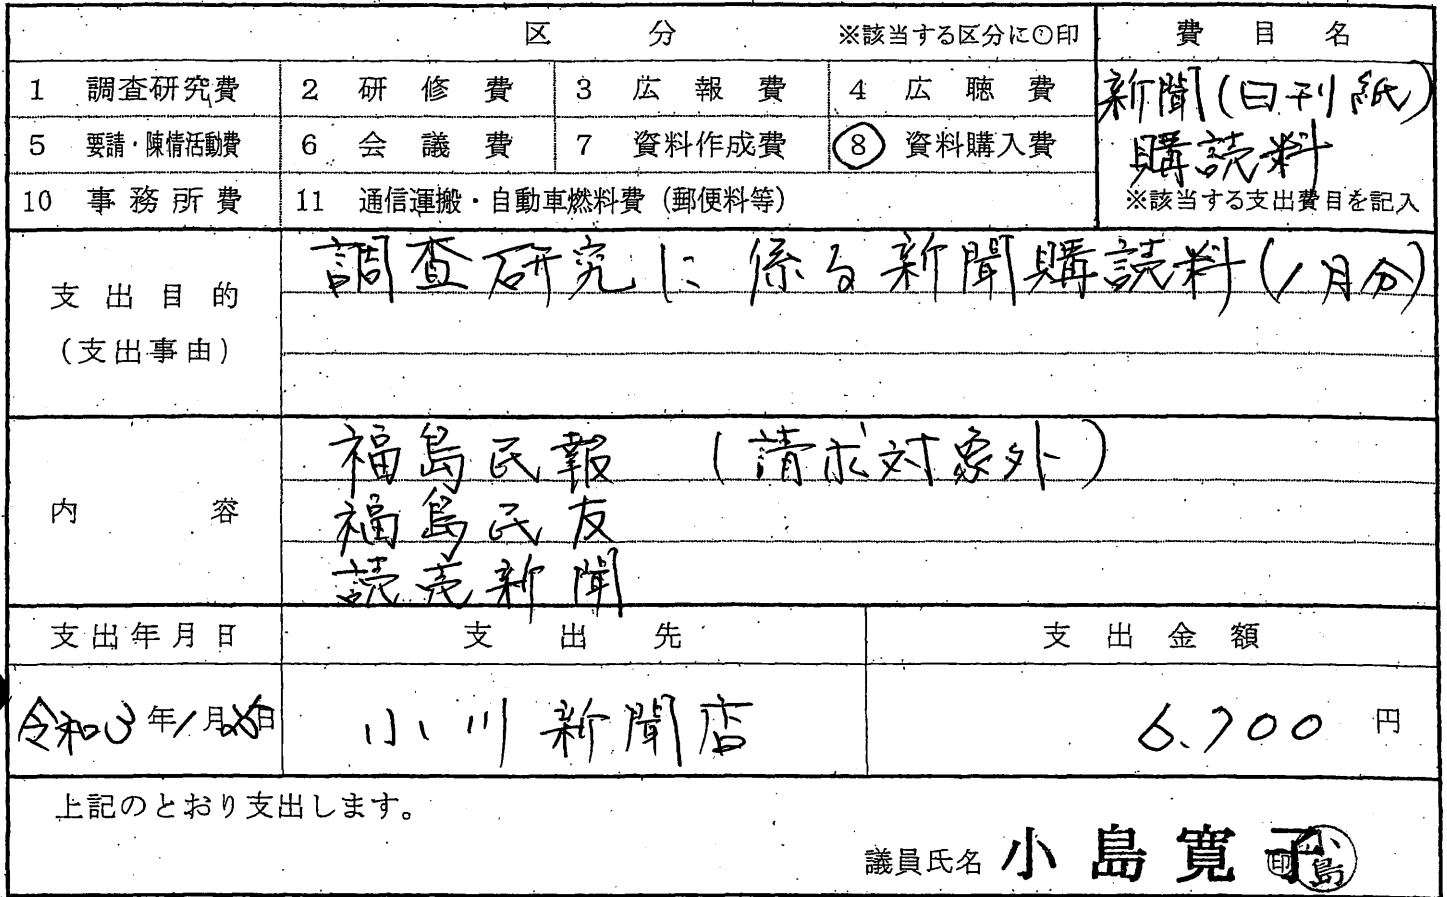 区 分 ※該当する区分に○印 費 目 名
1 調査研究費 2 研 修 費 3 広 報 費 4 広 聴 費
新聞(日刊紙)
5 要請・陳情活動費 6 会 議 費 7 資料作成費 8 資料購入費
購読料
10 事 務 所 費 11 通信運搬・自動車燃料費(郵便料等) ※該当する支出費目を記入
調査研究に係る新聞購読料(1月分)
支 出 目 的
(支出事由)
福島民報 (請求対象外)
内 容
福島民友
読売新聞
支出年月日 支 出 先 支 出 金 額
令和3年1月 日 小川新聞店 6,700 円
上記のとおり支出します。
議員氏名 小島寛子 印 小島